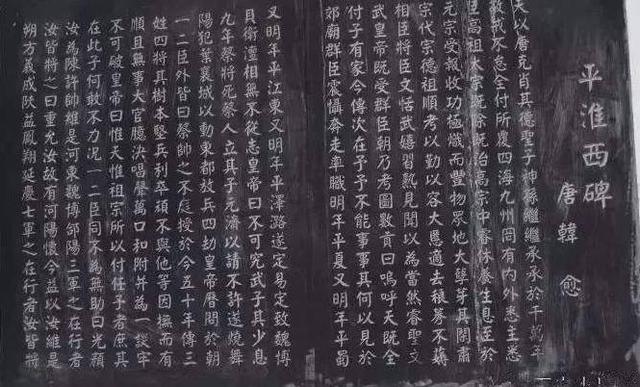 平淮西碑
唐韓愈
天以唐克肖其德聖子神孫繼繼承承於千萬年
敬戒不怠全付所覆四海九州罔有內外悉主悉
臣高祖太宗既除既治高宗中睿休養生息至於
元宗受報收功極熾而豐物眾地大孽芽其間肅
宗代宗德祖順考以勤以容大慝適去稂莠不薅
相臣將臣文恬武嬉習熟見聞以為當然睿聖文
武皇帝既受群臣朝乃考圖數貢曰嗚呼天既全
付予有家今傳次在予予不能事事其何以見於
郊廟群臣震懾奔走率職明年平夏又明年平蜀
又明年平江東又明年平澤潞遂定易定致魏博
貝衛澶相無不從志皇帝曰不可究武予其少息
九年蔡將死蔡人立其子元濟以請不許遂燒舞
陽犯葉襄城以動東都放兵四劫皇帝歷問於朝
一二臣外皆曰蔡帥之不庭授於今五十年傳三
姓四將其樹本堅兵利卒頑不與他等因撫而有
順且無事大官臆決唱聲萬口和附并為一談牢
不可破皇帝曰惟天惟祖宗所以付任予者庶其
在此予何敢不力況一二臣同不為無助曰光顏
汝為陳許帥維是河東魏博郃陽三軍之在行者
汝皆將之曰重允汝故有河陽懷今益以汝維是
朔方義成陝益鳳翔延慶七軍之在行者汝皆將